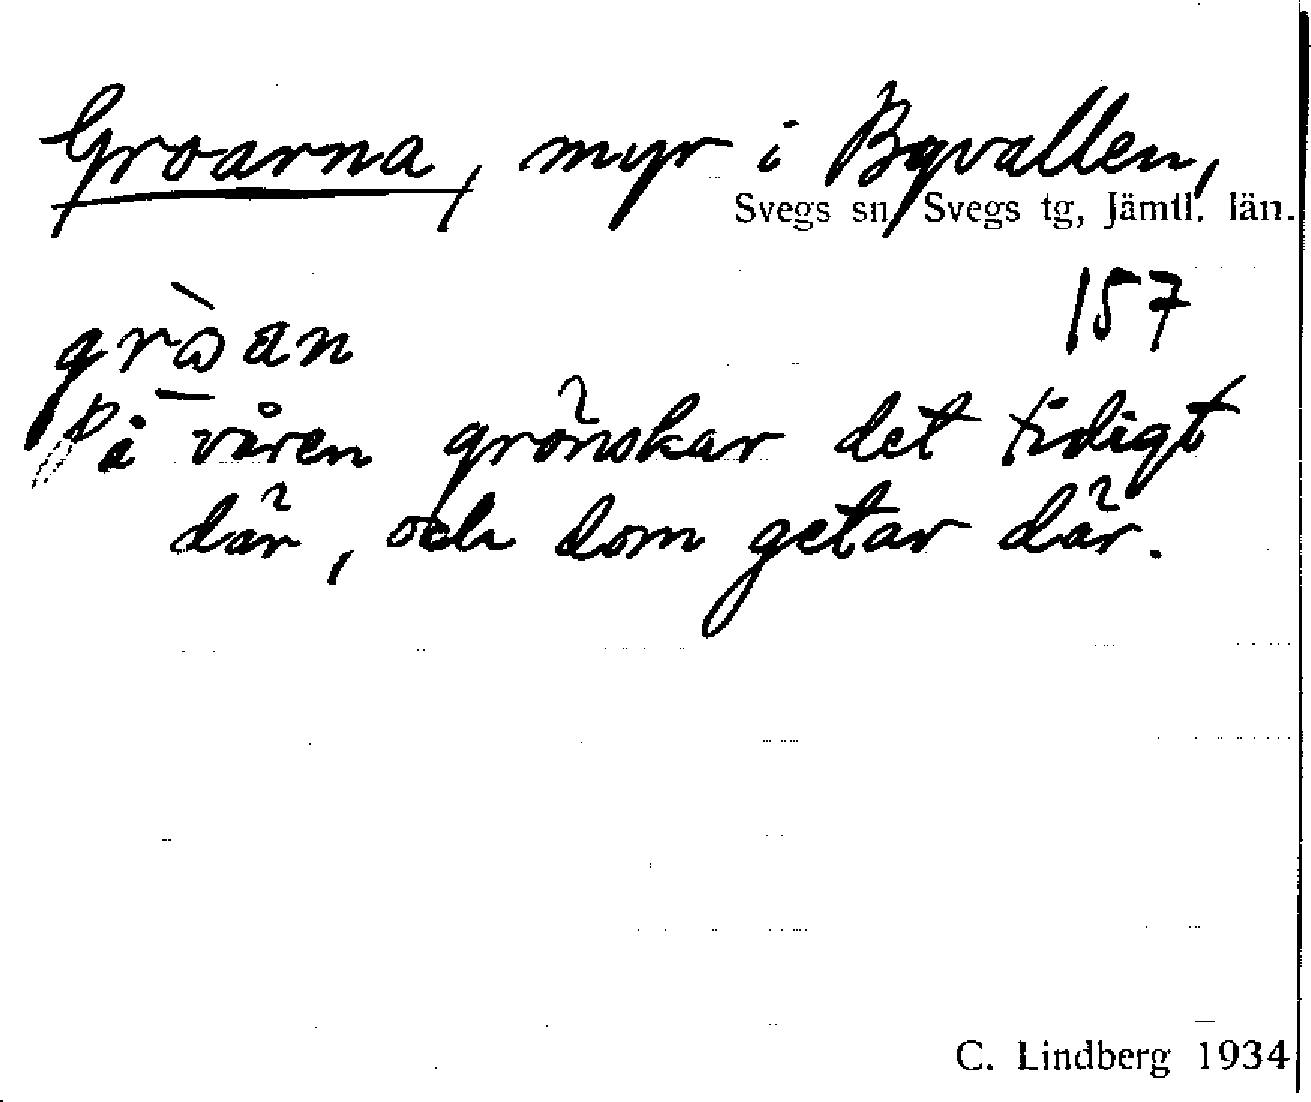 Groarna, myr i Bqvallen,
Svegs sn, Svegs tg, Jämtl. län.
157
På våren grönskar det tidigt
där, och dom getar där.
C. Lindberg 1934